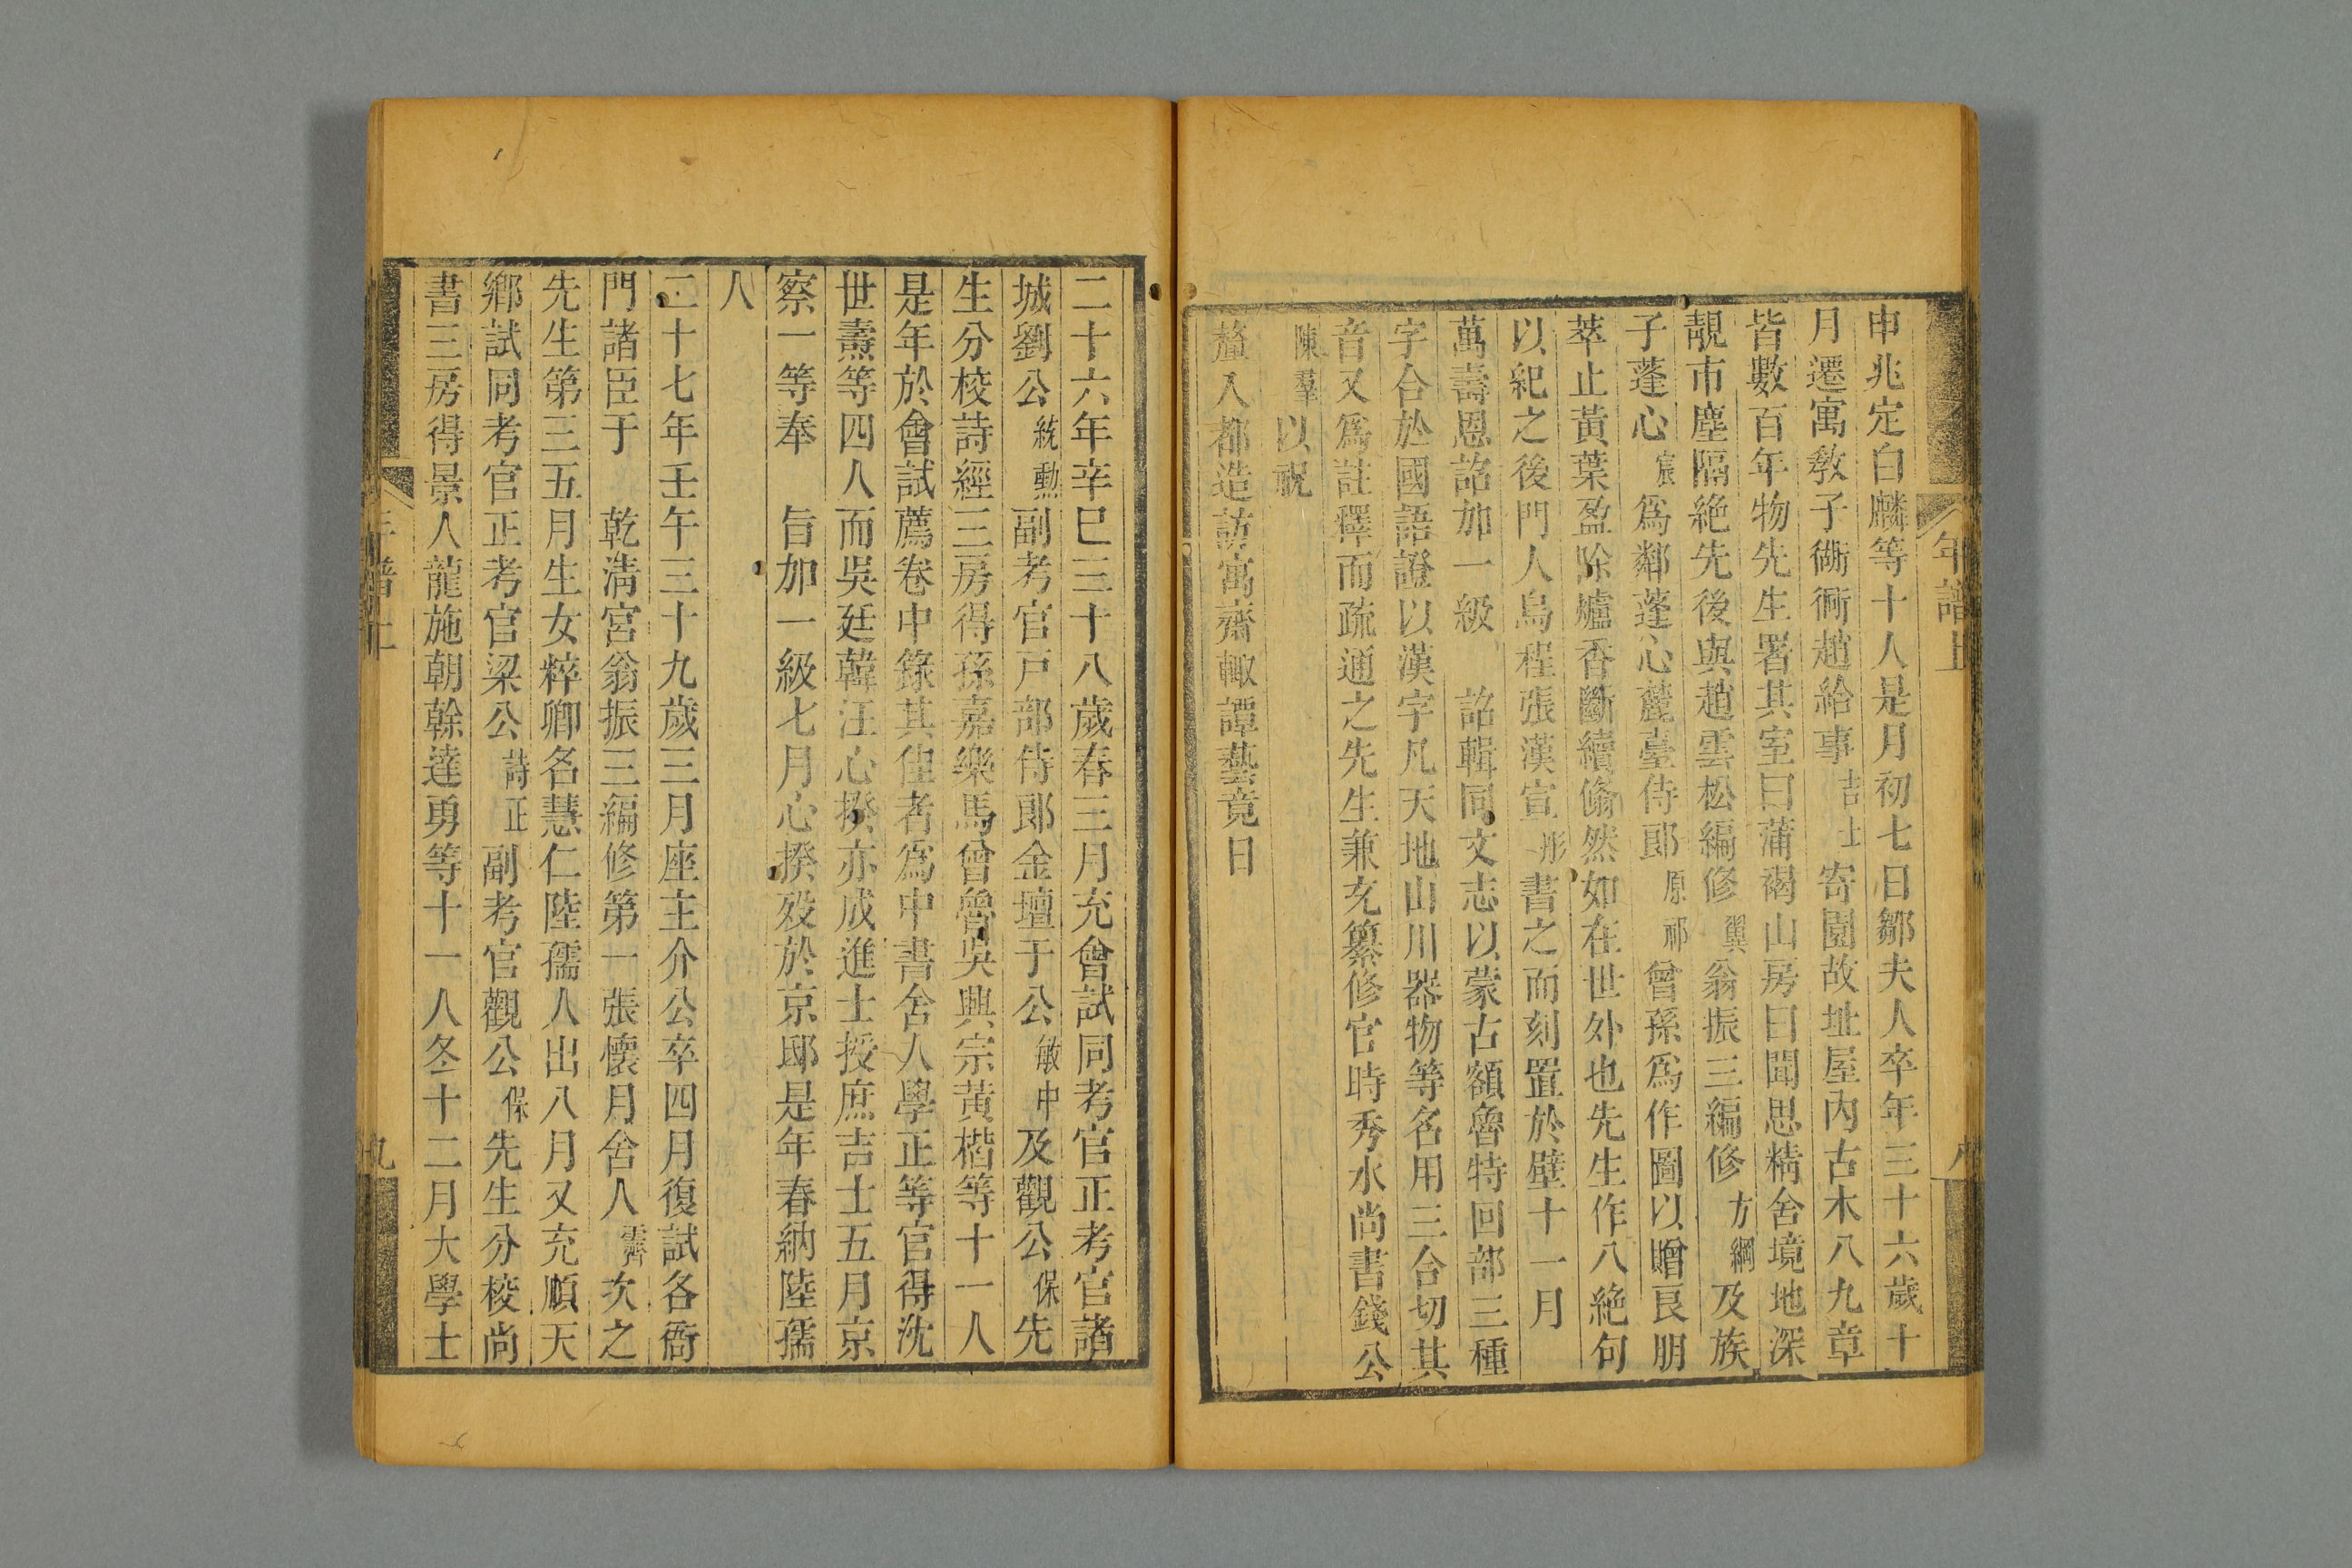 年譜上
八
申兆定白麟等十人是月初七日鄒夫人卒年三十六歲十
月遷寓教子衚衕趙給事吉士寄園故址屋內古木八九章
皆數百年物先生署其室曰蒲褐山房曰聞思精舍境地深
靚市塵隔絶先後與趙雲松編修翼翁振三編修方綱及族
子蓬心宸爲鄰蓬心麓臺侍郎原祁曾孫爲作圖以贈良朋
萃止黃葉盈除爐香斷續翛然如在世外也先生作八絶句
以紀之後門人烏程張漢宣彤書之而刻置於壁十一月
萬壽恩詔加一級 詔輯同文志以蒙古額魯特回部三種
字合於國語證以漢字凡天地山川器物等名用三合切其
音又爲註釋而疏通之先生兼充纂修官時秀水尚書錢公
陳羣以祝
釐入都造訪寓齋輙譚藝竟日
二十六年辛巳三十八歲春三月充會試同考官正考官諸
城劉公統勲副考官戸部侍郎金壇于公敏中及觀公保先
生分校詩經三房得孫嘉樂馬曾魯吳興宗黃楷等十一人
是年於會試薦卷中錄其佳者爲中書舍人學正等官得沈
世燾等四人而吳廷韓汪心揆亦成進士授庶吉士五月京
察一等奉 旨加一級七月心揆歿於京邸是年春納陸孺
人
二十七年壬午三十九歲三月座主介公卒四月復試各衙
門諸臣于 乾清宮翁振三編修第一張懷月舍人霽次之
先生第三五月生女粹卿名慧仁陸孺人出八月又充順天
鄉試同考官正考官梁公詩正副考官觀公保先生分校尚
書三房得景人龍施朝榦達勇等十一人冬十二月大學士
年譜上
九